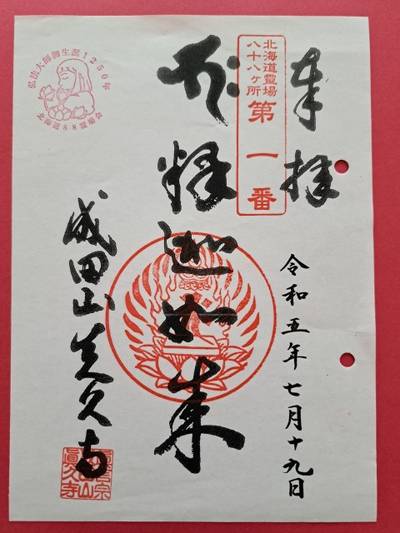 奉拝
北海道霊場
八十八ヶ所
第一番
釈迦如来
令和五年七月十九日
成田山真久寺
弘法大師御生誕1250年
北海道88霊場会